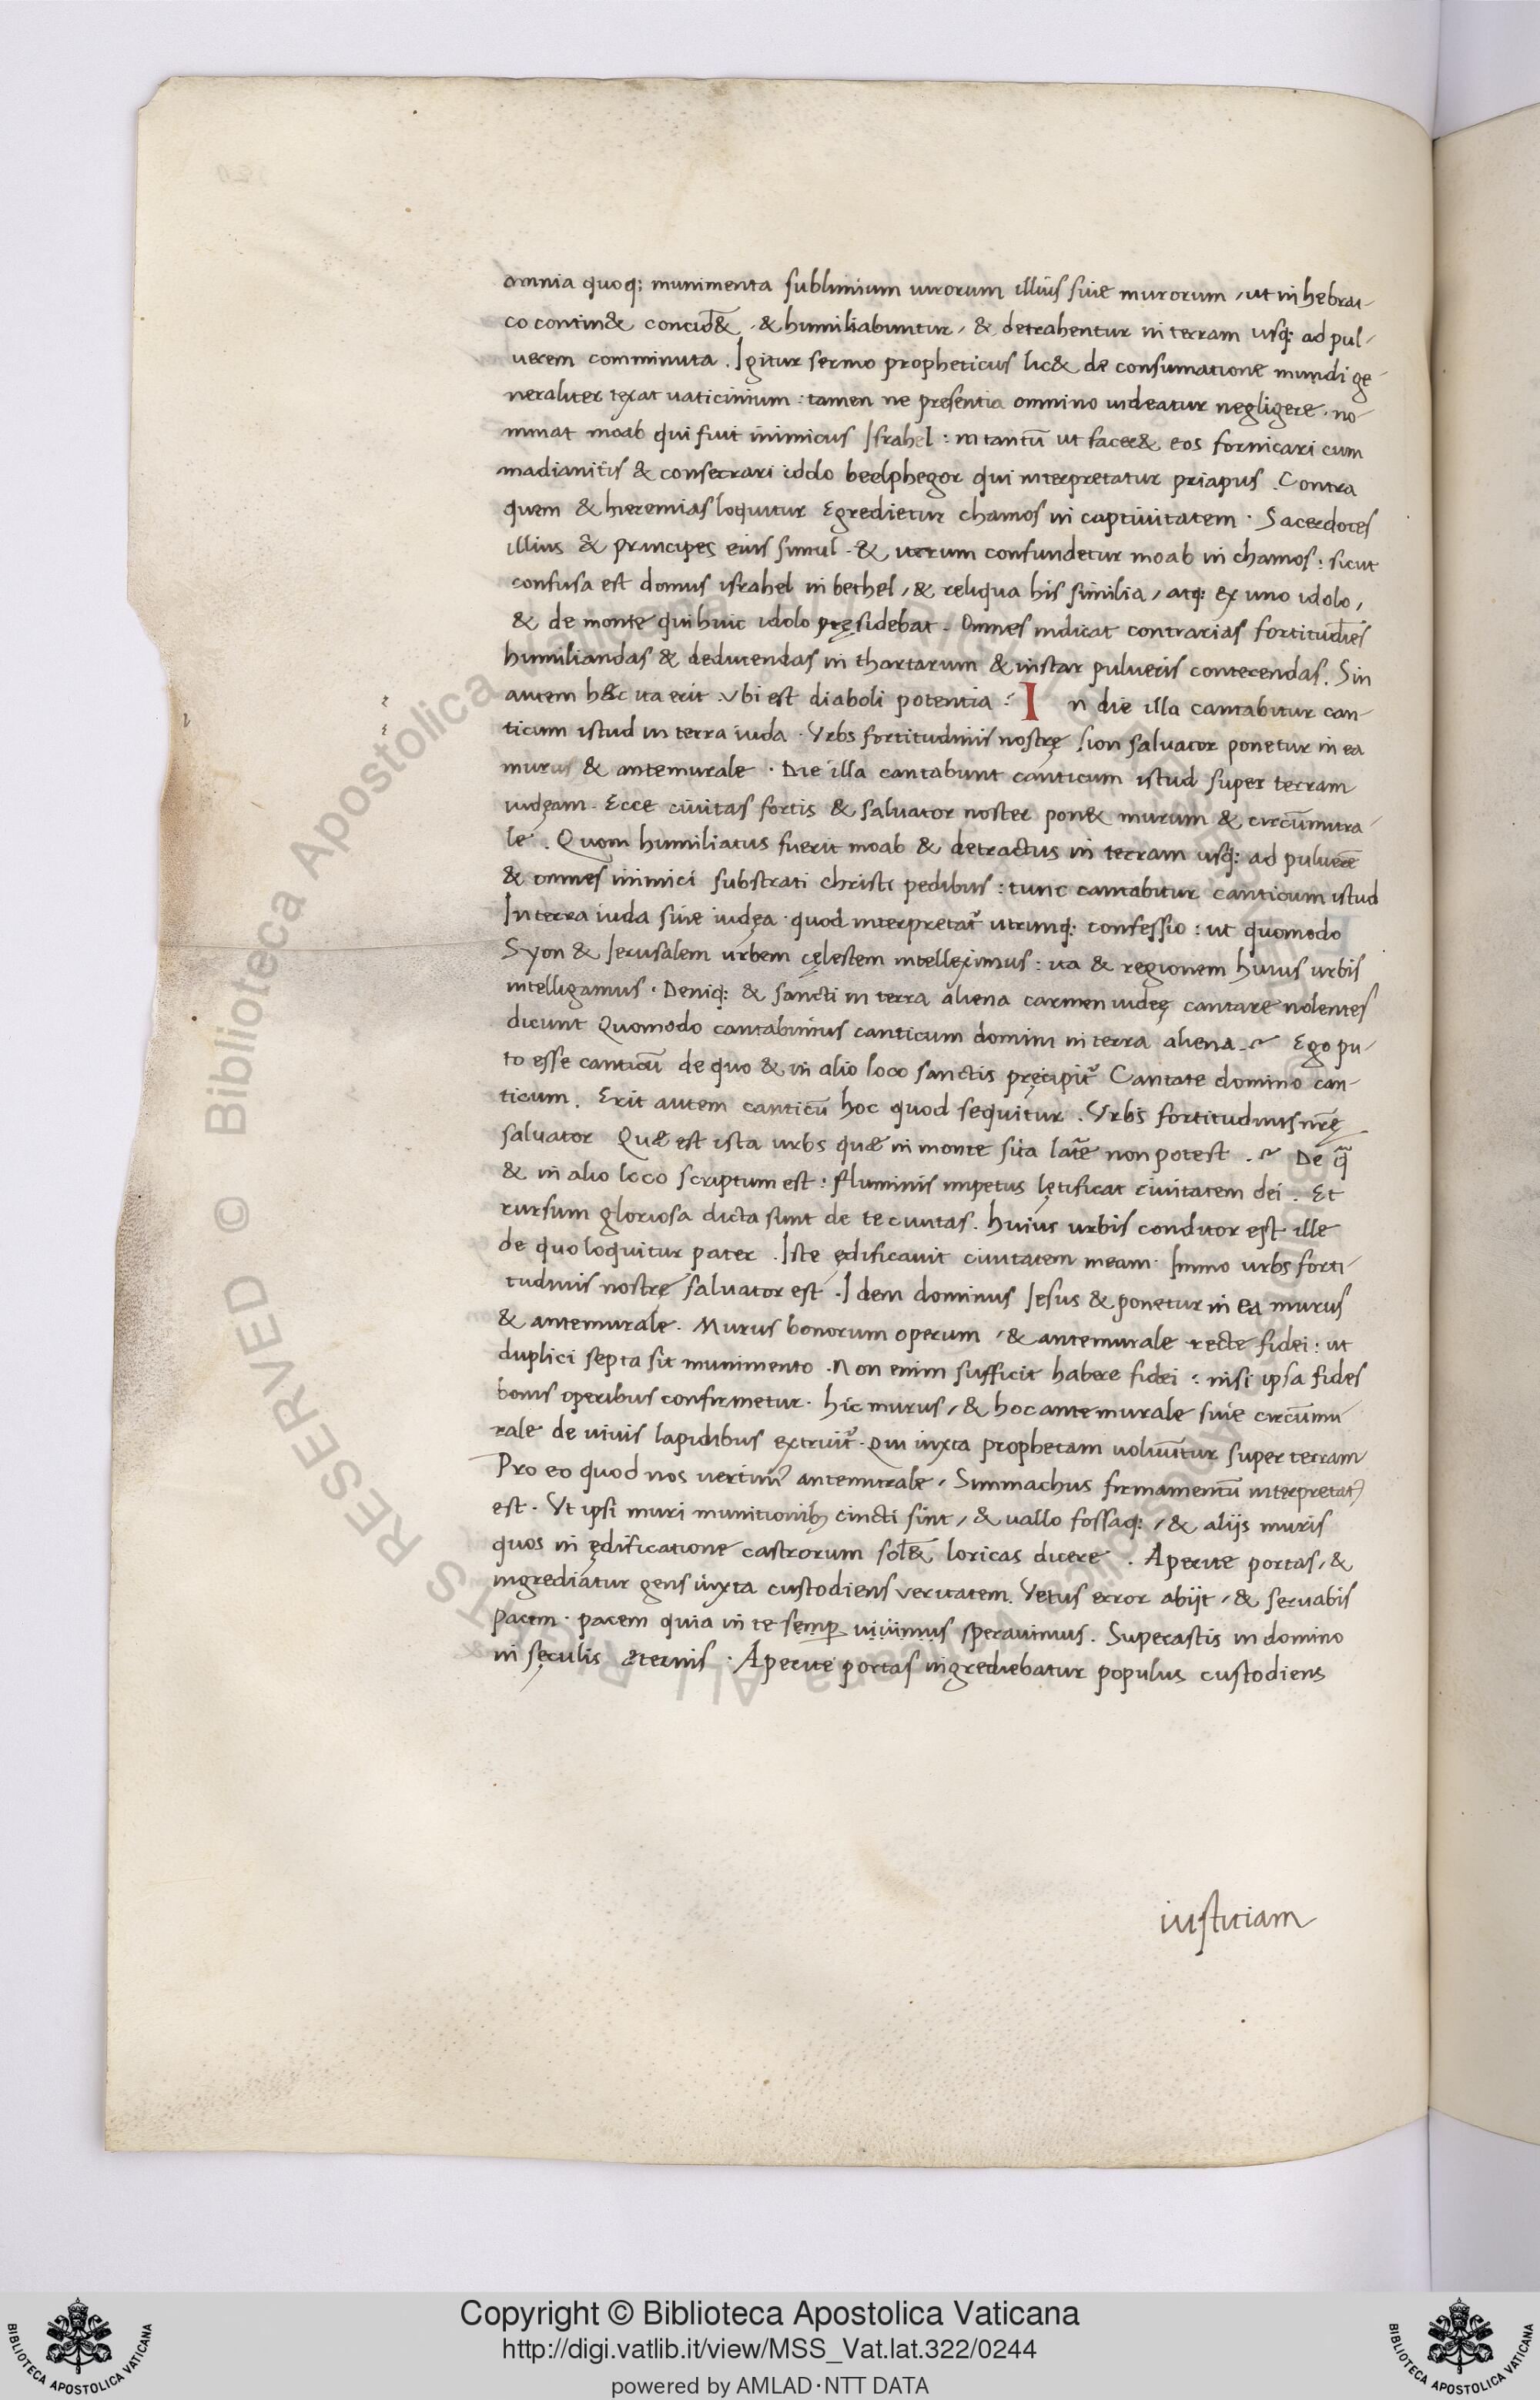 omnia quoq; munimenta sublimium uirorum illius siue murorum / ut in hebrai-
co contin& concid̅& . & humiliabuntur / & detrahentur in terram usq; ad pul-
uerem comminuta . Igitur sermo propheticus lic& de consumatione mundi ge-
neraliter texat uaticinium : tamen ne presentia omnino uideatur negligere . no-
minat moab qui fuit inimicus Israhel : in tantū ut facer& eos fornicari cum
madianitis & consecrari idolo beelphegor qui interpretatur priapus . Contra
quem & hieremias loquitur Egredietur chamos in captiuitatem . Sacerdotes
illius & principes eius simul . & iterum confundetur moab in chamos : sicut
confusa est domus israhel in bethel / & reliqua his similia / atq; ex uno idolo /
& de monte qui huic idolo pręsidebat . Omnes indicat contrarias fortitudīes
humiliandas & deducendas in thartarum & instar pulueris conterendas . Sin
autem hæc ita erit . Vbi est diaboli potentia : In die illa cantabitur can-
ticum istud in terra iuda . Vrbs fortitudinis nostrę sion saluator ponetur in ea
murus & antemurale . Die illa cantabunt canticum istud super terram
iudęam . Ecce ciuitas fortis & saluator noster pon& murum & circūmura-
le . Quom humiliatus fuerit moab & detractus in terram usq; ad puluerē
& omnes inimici substrati christi pedibus : tunc cantabitur canticum istud
In terra iuda siue iudęa . quod interpretat᷑ utrunq; confessio : ut quomodo
Syon & Ierusalem urbem cęlestem intelleximus : ita & regionem huius urbis
intelligamus . Deniq; & sancti in terra aliena carmen iudeę cantare nolentes
dicunt Quomodo cantabimus canticum domini in terra aliena . Ego pu-
to esse canticū de quo & in alio loco sanctis pręcipit᷑ Cantate domino can-
ticum . Erit autem canticū hoc quod sequitur . Vrbs fortitudinis nr̄ę
saluator Quæ est ista urbs quæ in monte sita latē non potest . De q̄
& in alio loco scriptum est : fluminis impetus lętificat ciuitatem dei . Et
rursum gloriosa dicta sunt de te ciuitas . huius urbis conditor est ille
de quo loquitur pater . Iste ędificauit ciuitatem meam . Immo urbs forti-
tudinis nostrę saluator est . Idem dominus Iesus & ponetur in ea murus
& antemurale . Murus bonorum operum / & antemurale recte fidei : ut
duplici septa sit munimento . Non enim sufficit habere fidei : nisi ipsa fides
bonis operibus confirmetur . hic murus / & hoc antemurale siue circūmu
rale de uiuis lapidibus extruit᷑ . Qui iuxta prophetam uoluūtur super terram
Pro eo quod nos uertim᷒ antemurale / Simmachus firmamentū interpretat᷒
est . Vt ipsi muri munitionib; cincti sint / & uallo fossaq; / & aliis muris
quos in ędificatione castrorum sol̄& loricas dicere . Aperite portas / &
ingrediatur gens iuxta custodiens ueritatem . Vetus error abijt / & seruabis
pacem . pacem quia in te semp̱ uiuimus sperauimus . Superastis in domino
in sęculis æternis . Aperite portas ingrediebatur populus custodiens
iustitiam
Copyright © Biblioteca Apostolica Vaticana
http://digi.vatlib.it/view/MSS_Vat.lat.322/0244
powered by AMLAD·NTT DATA